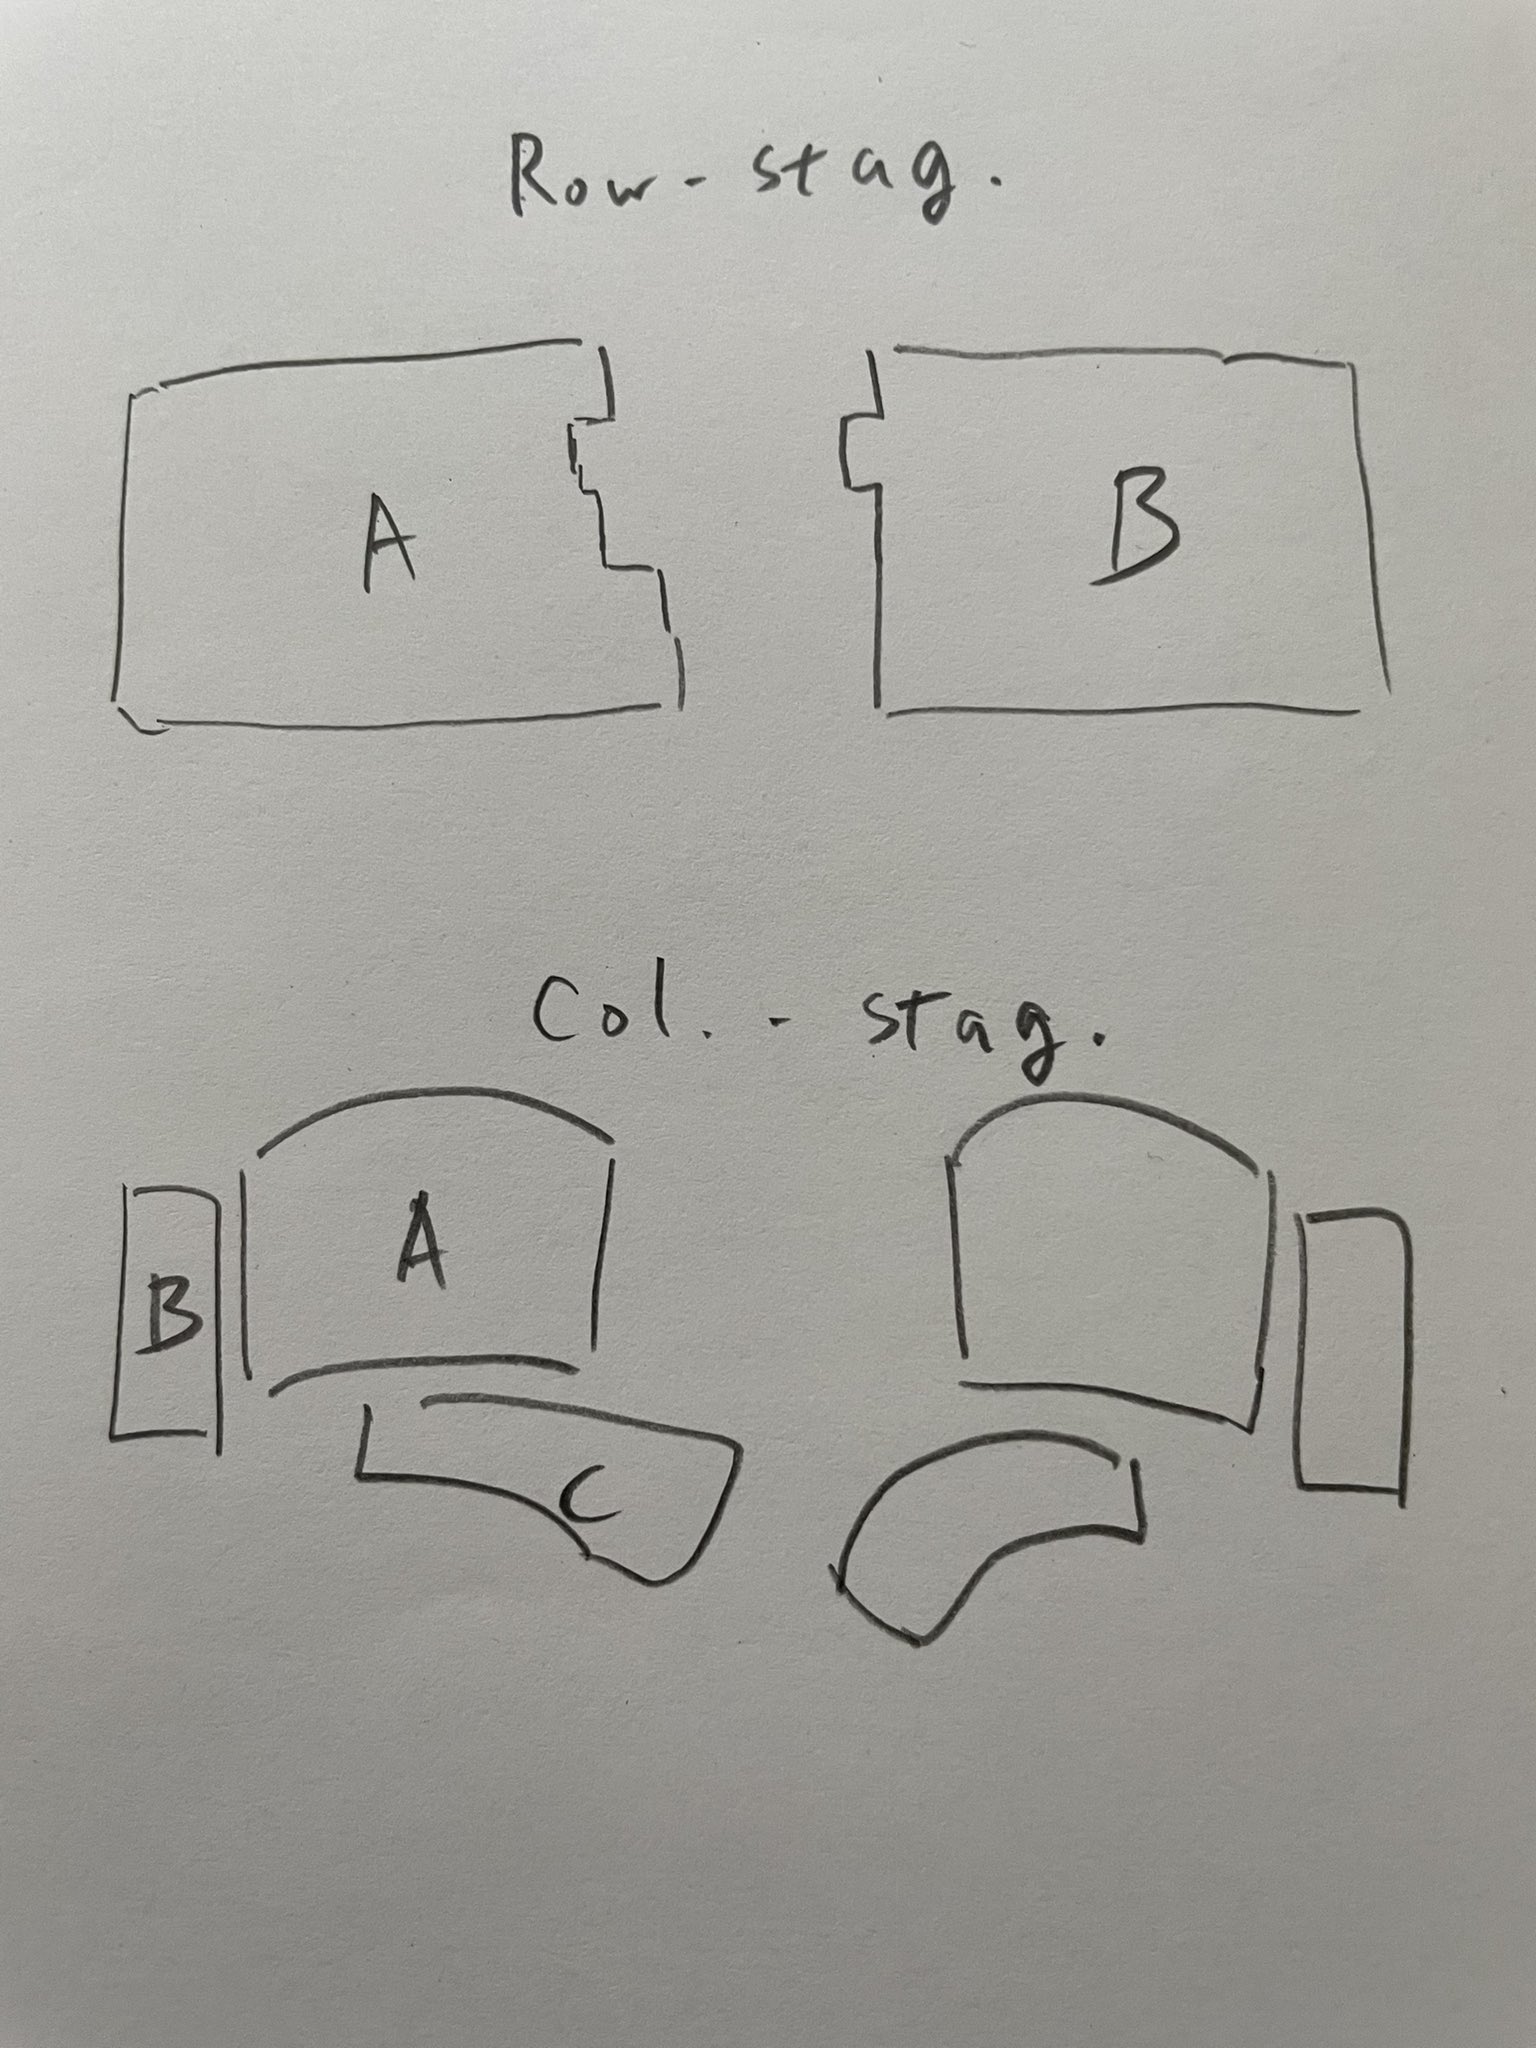 Row-stag.
A B
Col.-stag.
A
B
C